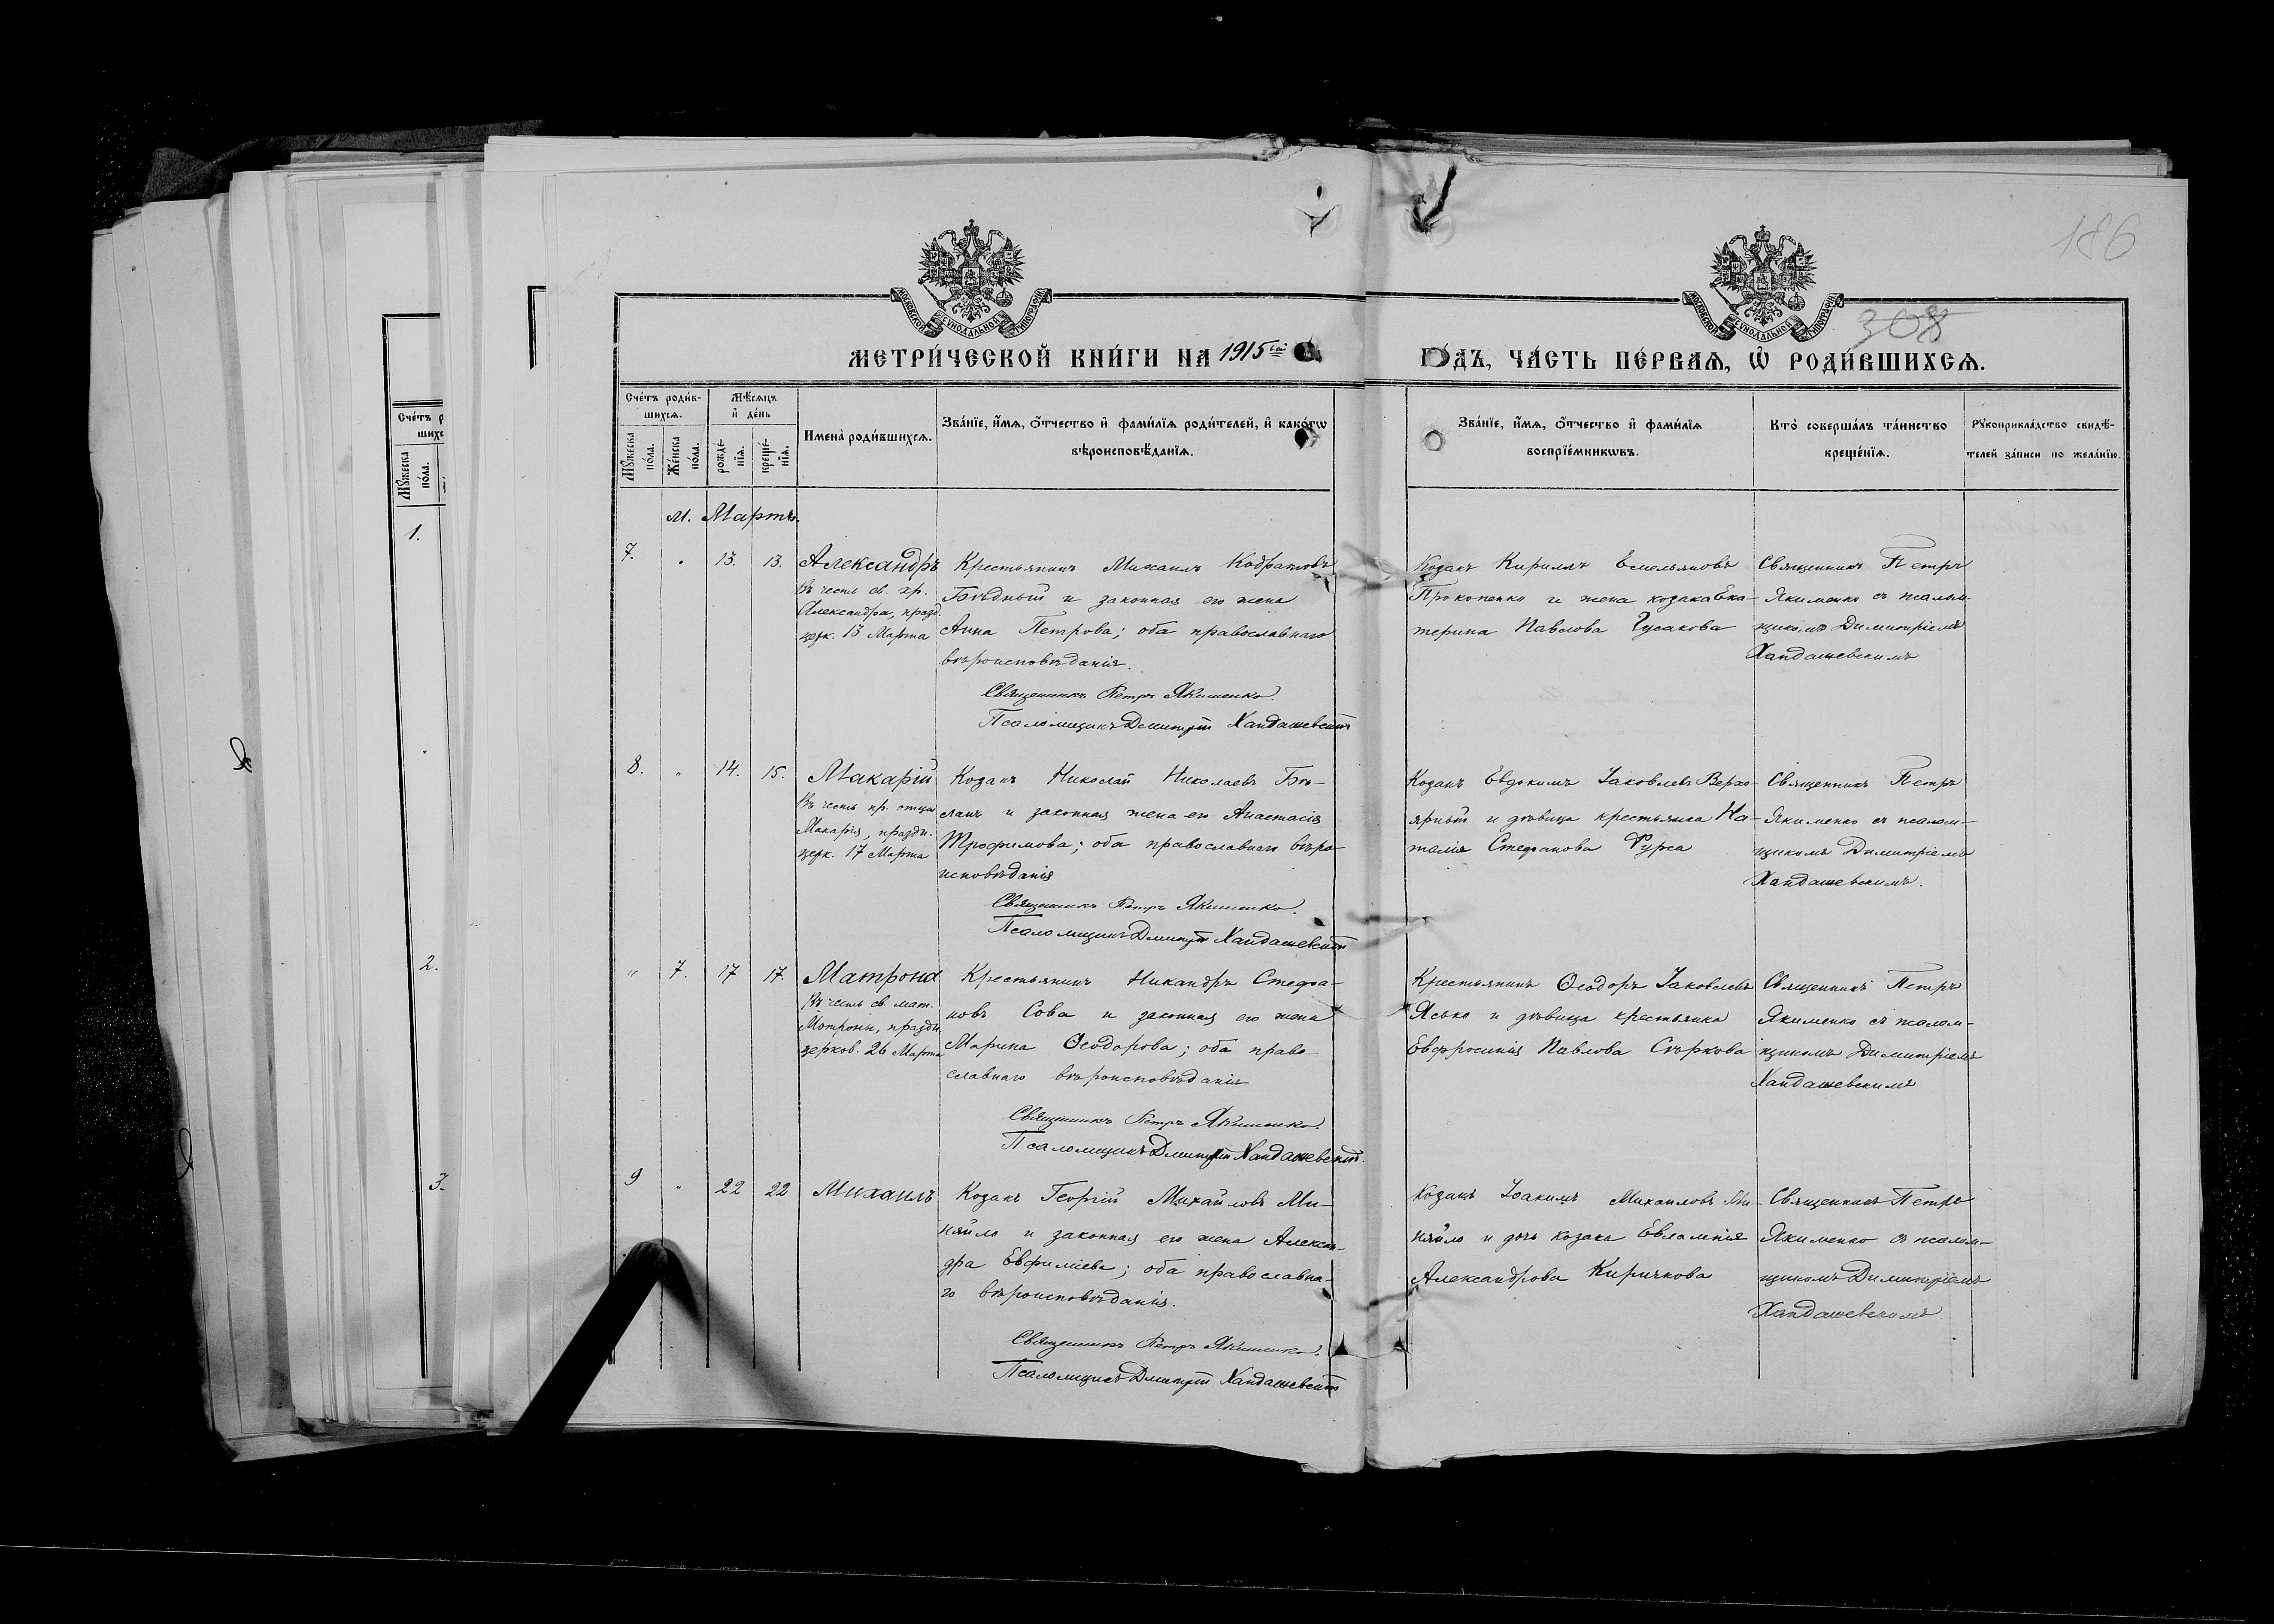 186
308
МОСКОВСКОЙ СѴНОДАЛЬНОЙ ТИПОГРАФІИ
МОСКОВСКОЙ СѴНОДАЛЬНОЙ ТИПОГРАФІИ
МЕТРИ́ЧЕСКОЙ КНИ́ГИ НА 1915ый
ГО́ДЪ, ЧА́СТЬ ПЕ́РВАѦ, Ѽ РОДИ́ВШИХСѦ.
Сче́тъ роди́в-
шихсѧ.
Мꙋжеска по́ла.
Же́нска по́ла.
Мѣ́сѧцъ
и҆ де́нь
рожде́-
нїѧ.
креще́-
нїѧ.
Имена̀ роди́вшихсѧ.
Зва́нїе, и҆́мѧ, ѻ҆́тчество и҆ фами́лїѧ роди́телей, и҆ како́гѡ
вѣроисповѣ́данїѧ.
Зва́нїе, и҆́мѧ, ѻ҆́тчество и҆ фами́лїѧ
воспрїе́мникѡвъ.
Кто̀ соверша́лъ та́инство
креще́нїѧ.
Рꙋкоприкла́дство свидѣ́-
телей за́писи по жела́нїю.
Сче́тъ р
шихс
Мꙋжеска
по́ла.
1.
2.
3.
м. Мартъ.
7. " 13. 13.
Александръ
Въ честь св. хр.
Александра, празд.
церк. 13 Марта
Крестьянинъ Михаилъ Кодратовъ
Бѣдный и законная его жена
Анна Петрова; оба православнаго
вѣроисповѣданія.
Священникъ Петръ Якименко.
Псаломщикъ Дмитрій Хандашевскій
Козакъ Кириллъ Емельяновъ
Прокопенко и жена козака Ека-
терина Павлова Гусакова
Священникъ Петръ
Якименко съ псалом-
щикомъ Димитріемъ
Хандашевскимъ
8. " 14. 15.
Макарій
Въ честь пр. отца
Макарія, праздн.
церк. 17 Марта
Козакъ Николай Николаевъ Бѣ-
ланъ и законная жена его Анастасія
Трофимова; оба православнаго вѣро-
исповѣданія
Священникъ Петръ Якименко.
Псаломщикъ Дмитрій Хандашевскій
Козакъ Евдокимъ Іаковлевъ Верхо-
ярный и дѣвица крестьянка На-
талія Стефанова Фурса
Священникъ Петръ
Якименко съ псалом-
щикомъ Димитріемъ
Хандашевскимъ.
" 7. 17 17.
Матрона
Въ честь св. мат.
Матроны, праздн.
церков. 26 Марта
Крестьянинъ Никандръ Стефа-
новъ Сова и законная его жена
Марина Ѳеодорова; оба право-
славнаго вѣроисповѣданія
Священникъ Петръ Якименко.
Псаломщикъ Дмитрій Хандашевскій.
Крестьянинъ Ѳеодоръ Іаковлевъ
Ясько и дѣвица крестьянка
Евфросинія Павлова Сѣркова
Священникъ Петръ
Якименко съ псалом-
щикомъ Димитріемъ
Хандашевскимъ
9 " 22 22
Михаилъ
Козакъ Георгій Михайловъ Ми-
няйло и законная его жена Алексан-
дра Евфиміева; оба православна-
го вѣроисповѣданія.
Священникъ Петръ Якименко.
Псаломщикъ Дмитрій Хандашевскій
Козакъ Іоакимъ Михаиловъ Ми-
няйло и дочь козака Евлампія
Александрова Киричкова
Священникъ Петръ
Якименко съ псалом-
щикомъ Димитріемъ
Хандашевскимъ